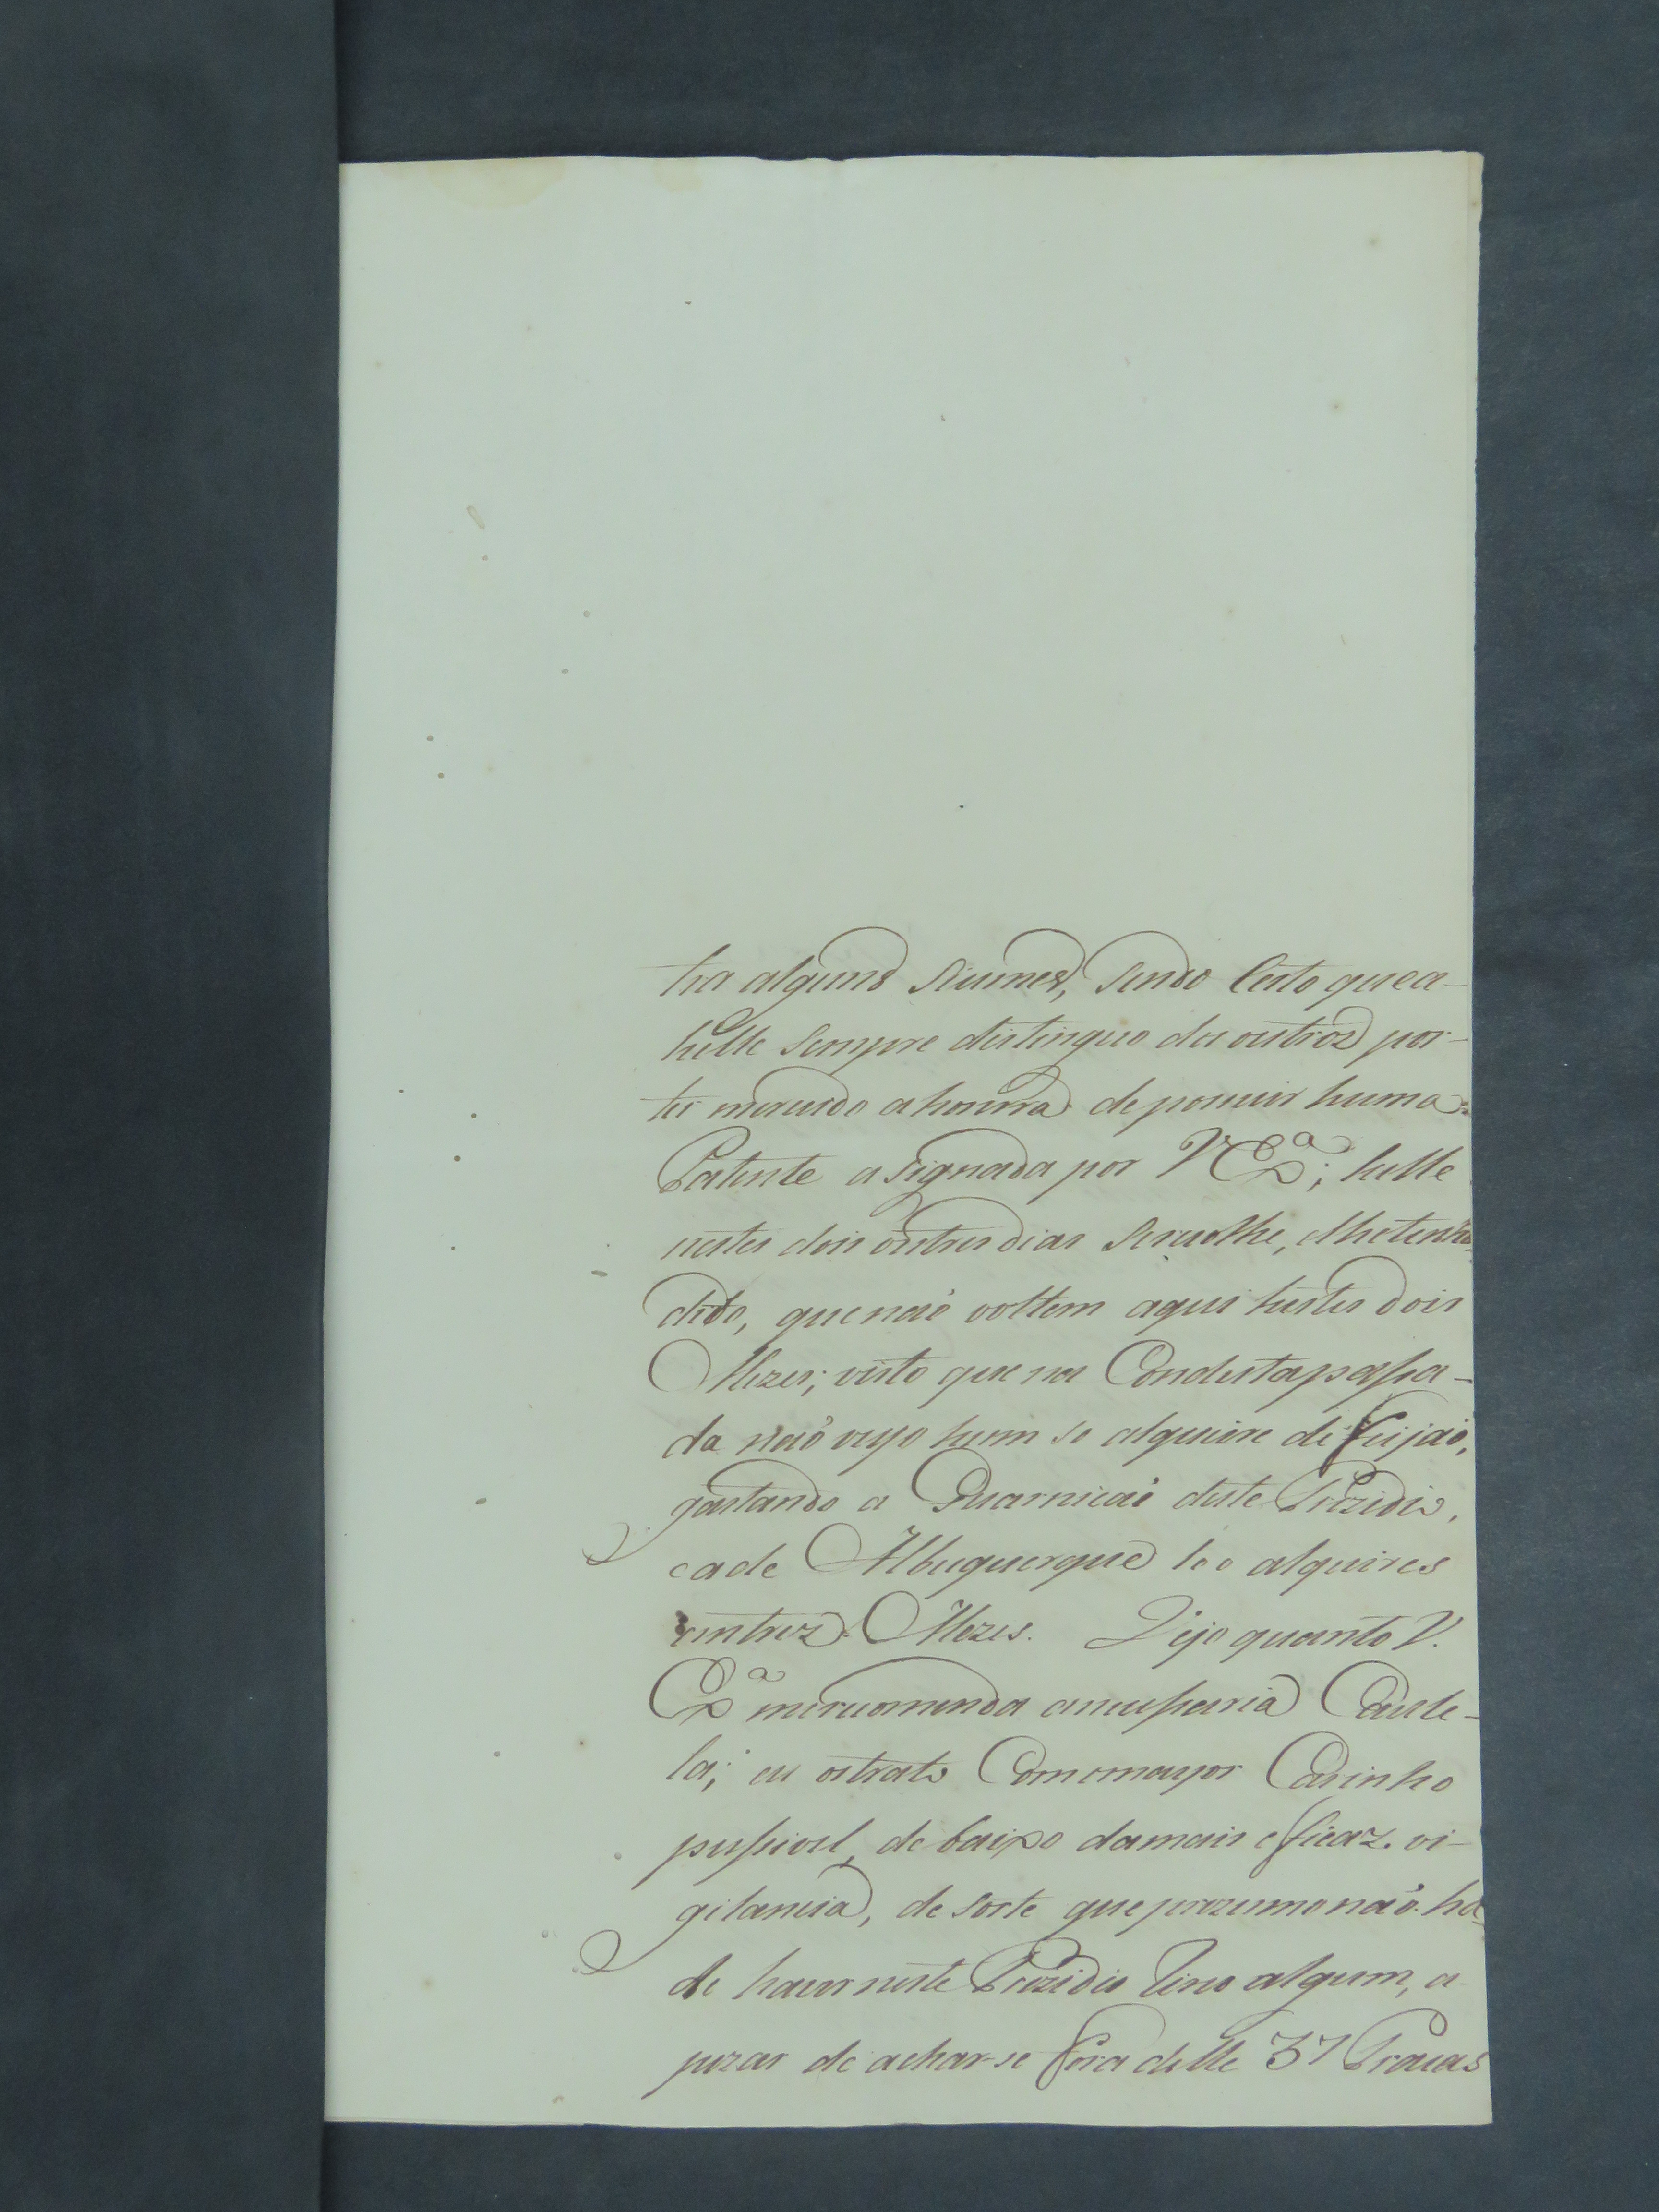 ha alguns Siumes, Sendo Certo que a-
helle Sempre destinguo dos outros por-
ter merecido a honrra de pocuir huma
Patente asignada por V Exª; helle
nestes dois outres dias Seruolhe, e lhetenho
dido, que naõ voltem aqui hestes dois
Mezes; visto que na Condusta passa-
da naõ veyo hum so alqueire de Feijaõ,
gastando a Guarnicaõ deste Prezidio,
e a de Albuquerque 100 alqueires
emtrez Mezes. Vejo quanto V.
Exª merecomenda anecessaria Caute-
la; eu ostrato Comomayor Carinho
pussivel, de baixo damais efficaz. vi-
gilancia, de sorte que prezumo naõ ha
de haver neste Prezidio Cirio algum, a
pezar de achar-se fora delle 37 Pracas